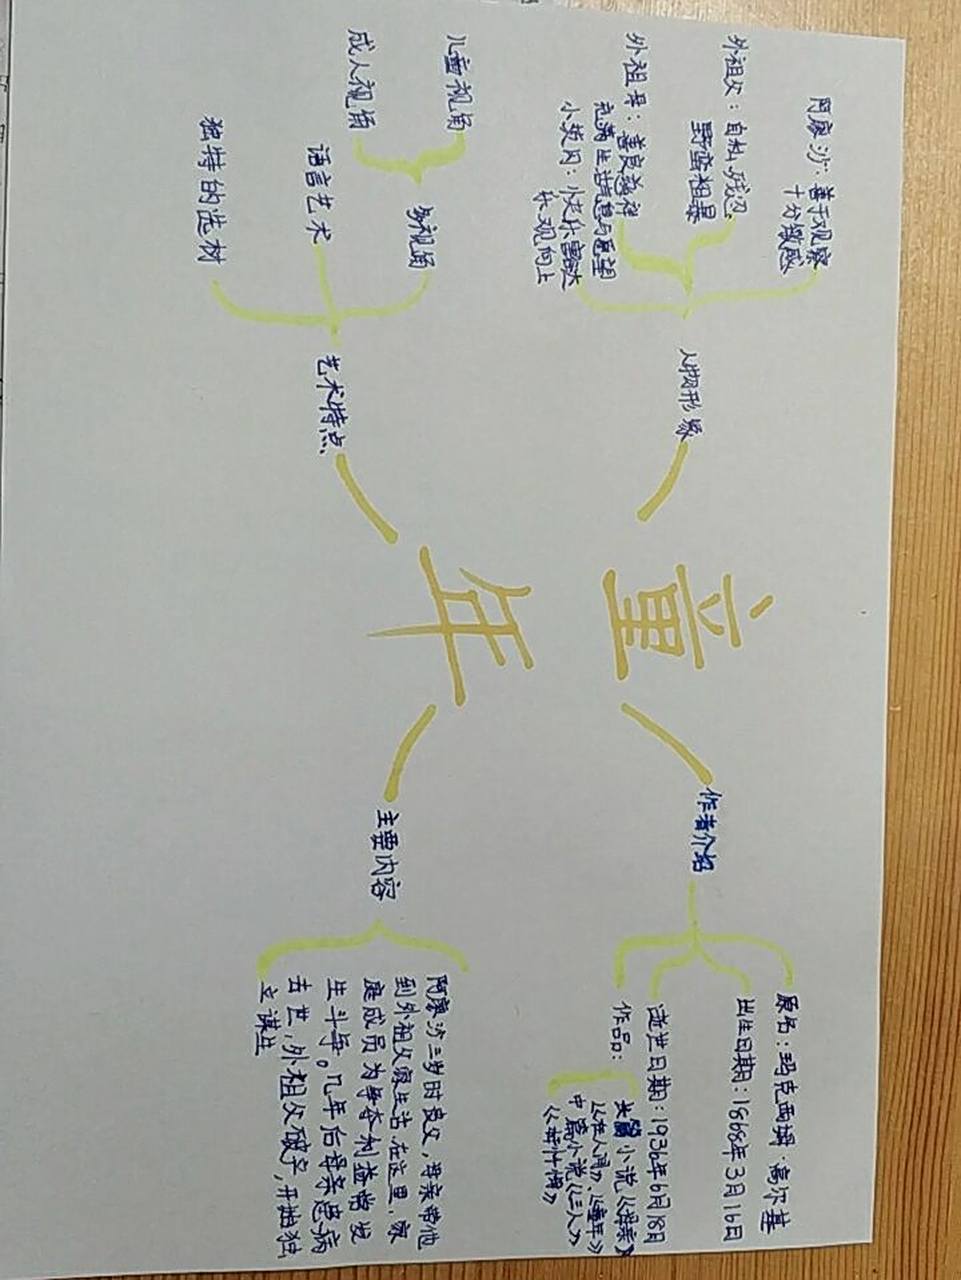 童年
人物形象
阿廖沙：善于观察
十分敏感
外祖父：自私、残忍
野蛮粗暴
外祖母：善良慈祥
充满生活气息与愿望
小茨冈：
乐观向上
艺术特点
多视角
儿童视角
成人视角
语言艺术
独特的选材
作者介绍
原名：玛克西姆·高尔基
出生日期：1868年3月16日
逝世日期：1936年6月18日
作品：
小说《母亲》
《在人间》《童年》
中篇小说《三人》
《忏悔》
主要内容
阿廖沙三岁时丧父，母亲带他
到外祖父家生活.在这里，家
庭成员为争夺利益常发
生斗争。几年后母亲患病
去世，外祖父破产，开始独
立谋生